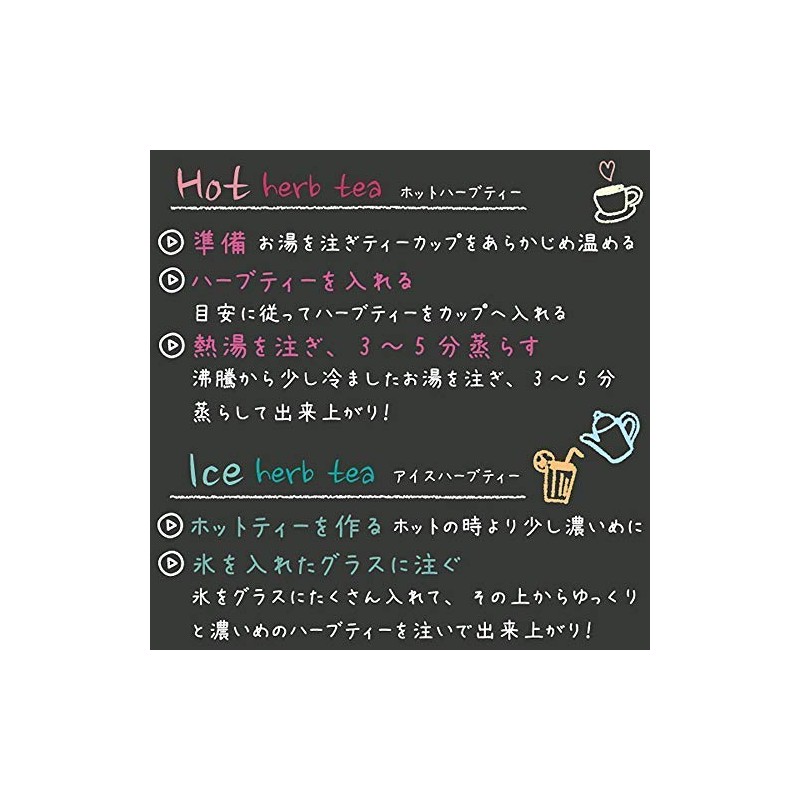 Hot herb tea ホットハーブティー
準備 お湯を注ぎティーカップをあらかじめ温める
ハーブティーを入れる
目安に従ってハーブティーをカップへ入れる
熱湯を注ぎ、3〜5分蒸らす
沸騰から少し冷ましたお湯を注ぎ、3〜5分
蒸らして出来上がり!
Ice herb tea アイスハーブティー
ホットティーを作る ホットの時より少し濃いめに
氷を入れたグラスに注ぐ
氷をグラスにたくさん入れて、その上からゆっくり
と濃いめのハーブティーを注いで出来上がり!